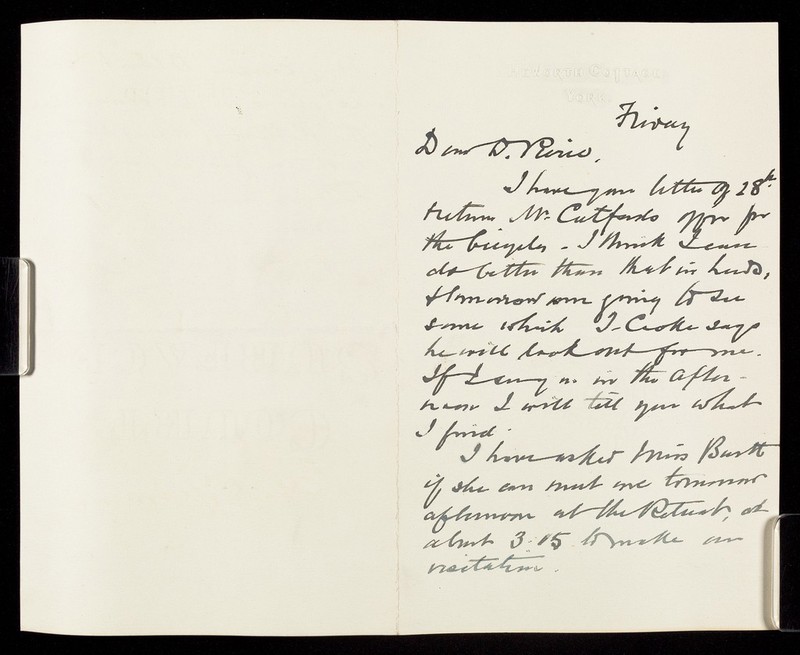 Friday
Dear D. Pierce,
I have your letter of 28th
return Mr. Catfords offer for
the bicycles - I think I can
do better than that in Leeds,
& tomorrow am going to see
some which J. Cooke says
he will look out for me.
If I in the after-
noon I will tell you what
I find.
I have asked Miss Bartt
if she can meet me tomorrow
afternoon at the Retreat, at
about 3.15 to make our
visitation.